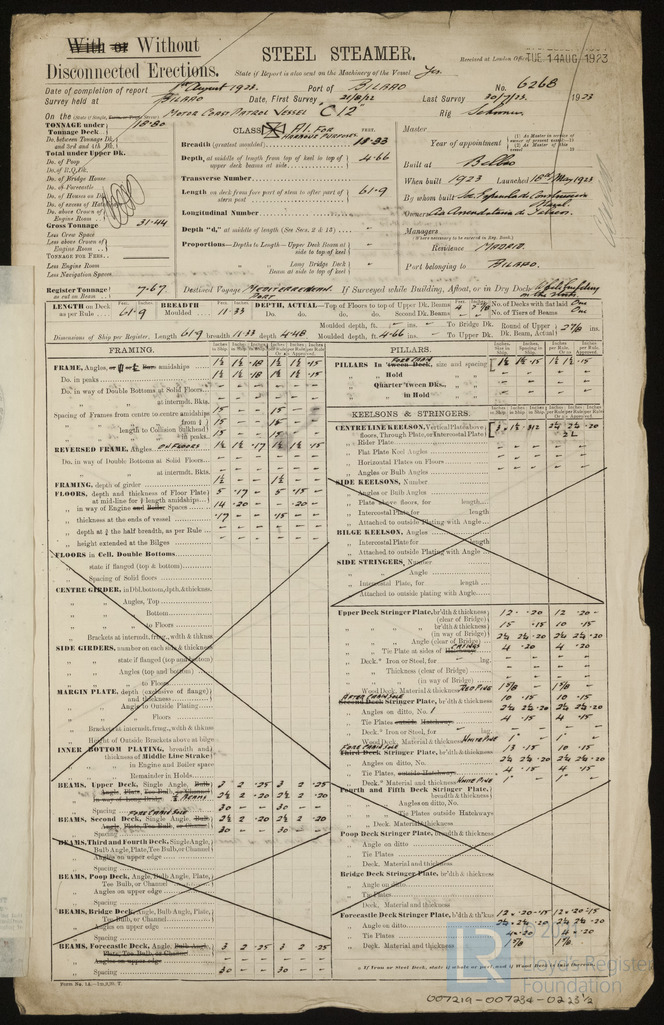 With or Without
Disconnected Erections.
STEEL STEAMER.
State if Report is also sent on the Machinery of the Vessel Yes
Received at London Office TUE 14 AUG 1923
Date of completion of report 1st August 1923. Port of BILBAO No. 6268
Survey held at BILBAO Date, First Survey 21/8/22 Last Survey 20/7/23. 1923
On the MOTOR COAST PATROL VESSEL "C 12" Rig Schooner
TONNAGE under Tonnage Deck 18.80
Do. between Tonnage Dk. and 3rd and 4th Dk.
Total under Upper Dk.
Do. of Poop
Do. of R.Q.Dk.
Do. of Bridge House
Do. of Forecastle
Do. of Houses on Dk.
Do. of excess of Hatches
Do. above Crown of Engine Room
Gross Tonnage 31.44
Less Crew Space
Less above Crown of Engine Room
TONNAGE FOR FEES
Less Engine Room
Less Navigation Spaces
Register Tonnage as cut on Beam 7.67
CLASS A1. FOR HARBOUR PURPOSES FEET.
Breadth (greatest moulded) 18.33
Depth, at middle of length from top of keel to top of upper deck beams at side 4.66
Transverse Number
Length on deck from fore part of stem to after part of stern post 61.9
Longitudinal Number
Depth "d," at middle of length (See Secs. 2 & 13)
Proportions—Depths to Length—Upper Deck Beam at side to top of keel
Long Bridge Deck Beam at side to top of keel
Master
Year of appointment
Built at Bilbao
When built 1923 Launched 18th May 1923
By whom built Soc Española de Construccion Naval.
Owners
Managers
(Where necessary to be entered in Reg. Book.)
Residence MADRID.
Port belonging to BILBAO.
Destined Voyage MEDITERRANEAN PORT If Surveyed while Building, Afloat, or in Dry Dock While building on the stocks
LENGTH on Deck as per Rule 61.9 BREADTH Moulded 11.33 DEPTH, ACTUAL—Top of Floors to top of Upper Dk. Beams 4 2⅞ No. of Decks with flat laid One
Do. Do. Do. Second Dk. Beams No. of Tiers of Beams One
Dimensions of Ship per Register, Length 61.9 breadth 11.33 depth 4.48 Moulded depth, ft. To Bridge Dk. Round of Upper Dk. Beam, Actual 2⅞ ins.
Moulded depth, ft. 4.66 To Upper Dk.
FRAMING.
FRAME, Angles, amidships 1½ 1½ .18 1½ 1½ .15
Do. in peaks 1½ 1½ .18 1½ 1½ .15
Do. in way of Double Bottoms at Solid Floors
at intermdt. Bkts.
Spacing of Frames from centre to centre amidships 15 15
length to Collision bulkhead 15 15
in peaks 15 15
REVERSED FRAME, Angles ON FLOORS 1½ 1½ .17 1½ 1½ .15
Do. in way of Double Bottoms at Solid Floors
at intermdt. Bkts.
FRAMING, depth of girder 1½ 1½
FLOORS, depth and thickness of Floor Plate at mid-line for ½ length amidships 5 .17 5 .15
in way of Engine and Boiler Spaces 14 .20 .20
thickness at the ends of vessel .17 .15
depth at ¾ the half breadth, as per Rule
height extended at the Bilges
FLOORS in Cell. Double Bottoms
state if flanged (top & bottom)
Spacing of Solid floors
CENTRE GIRDER, in Dbl.bottom, dpth. & thickness.
Angles, Top
Bottom
to Floors
Brackets at intermdt. frmg., wdth & thknss
SIDE GIRDERS, number on each side & thickness
state if flanged (top and bottom)
Angles (top and bottom)
to Floors
MARGIN PLATE, depth (exclusive of flange) and thickness
Angle to Outside Plating
Floors
Brackets at intermdt. frmg., wdth & thknss
Height of Outside Brackets above at bilge
INNER BOTTOM PLATING, breadth and thickness of Middle Line Strake
in Engine and Boiler space
Remainder in Holds
BEAMS, Upper Deck, Single Angle, Bulb Angle, Plate, Tee Bulb, or Channel 3 2 .25 3 2 .25
in way of Long Bridge ½ BEAMS 2½ 2 .20 2½ 2 .20
Spacing 30 30
FORE CABIN SOLE
BEAMS, Second Deck, Single Angle, Bulb Angle, Plate, Tee Bulb, or Channel 2½ 2 .20 2½ 2 .20
Spacing 30 30
BEAMS, Third and Fourth Deck, Single Angle, Bulb Angle, Plate, Tee Bulb, or Channel
Angles on upper edge
Spacing
BEAMS, Poop Deck, Angle, Bulb Angle, Plate, Tee Bulb, or Channel
Angles on upper edge
Spacing
BEAMS, Bridge Deck, Angle, Bulb Angle, Plate, Tee Bulb, or Channel
Angles on upper edge
Spacing
BEAMS, Forecastle Deck, Angle, Bulb Angle, Plate, Tee Bulb, or Channel 3 2 .25 3 2 .25
Angles on upper edge
Spacing 30 30
PILLARS.
PILLARS In Tween Deck, size and spacing 1½ 1½ .15 1½ 1½ .15
Hold
Quarter 'tween Dks.,
in Hold
KEELSONS & STRINGERS.
CENTRE LINE KEELSON, Vertical Plate above floors, Through Plate, or Intercostal Plate
Rider Plate
Flat Plate Keel Angles
Horizontal Plates on Floors
Angles or Bulb Angles
SIDE KEELSONS, Number
Angles or Bulb Angles
Plate above floors, for length
Intercostal Plate for length
Attached to outside Plating with Angle
BILGE KEELSON, Angles
Intercostal Plate for length
Attached to outside Plating with Angle
SIDE STRINGERS, Number
Angle
Intercostal Plate, for length
Attached to outside plating with Angle
Upper Deck Stringer Plate, br'dth & thickness (clear of Bridge) 12 .20 12 .20
br'dth & thickness (in way of Bridge) 15 .15 10 .15
Angle (clear of Bridge) 2½ 2½ .20 2½ 2½ .20
Tie Plate at sides of Hatchways 4 .20 4 .20
Deck.* Iron or Steel, for lng.
Thickness (clear of Bridge)
(in way of Bridge)
Wood Deck, Material & thickness RED PINE 1⅝ 1⅝
AFTER CABIN SOLE
Second Deck Stringer Plate, br'dth & thickness 10 .15 10 .15
Angles on ditto, No. 2½ 2½ .20 2½ 2½ .20
Tie Plates outside Hatchways 4 .15 4 .15
Deck.* Iron or Steel, for lng.
Wood Deck, Material & thickness WHITE PINE 1" 1"
FORE CABIN SOLE
Third Deck Stringer Plate, br'dth & thickness 13 .15 10 .15
Angles on ditto, No. 2½ 2½ .20 2½ 2½ .20
Tie Plates outside Hatchways 4 .15 4 .15
Deck.* Material and thickness WHITE PINE 1" 1"
Fourth and Fifth Deck Stringer Plate, breadth & thickness
Angles on ditto, No.
Tie Plates outside Hatchways
Deck, Material & thickness
Poop Deck Stringer Plate, breadth & thickness
Angle on ditto
Tie Plates
Deck, Material and thickness
Bridge Deck Stringer Plate, br'dth & thickness
Angle on ditto
Tie Plates
Deck, Material and thickness
Forecastle Deck Stringer Plate, br'dth & th'knss 12 × .20 .15 12 × .20 .15
Angle on ditto 2½ 2½ .20 2½ 2½ .20
Tie Plates 4 × .20 4 × .20
Deck, Material and thickness 1⅝ 1⅝
* If Iron or Steel Deck, state if whole or part, and if Wood Deck is laid thereon.
Form No. 1A.
LR
Lloyd's Register
Foundation
007219-007234-0223½